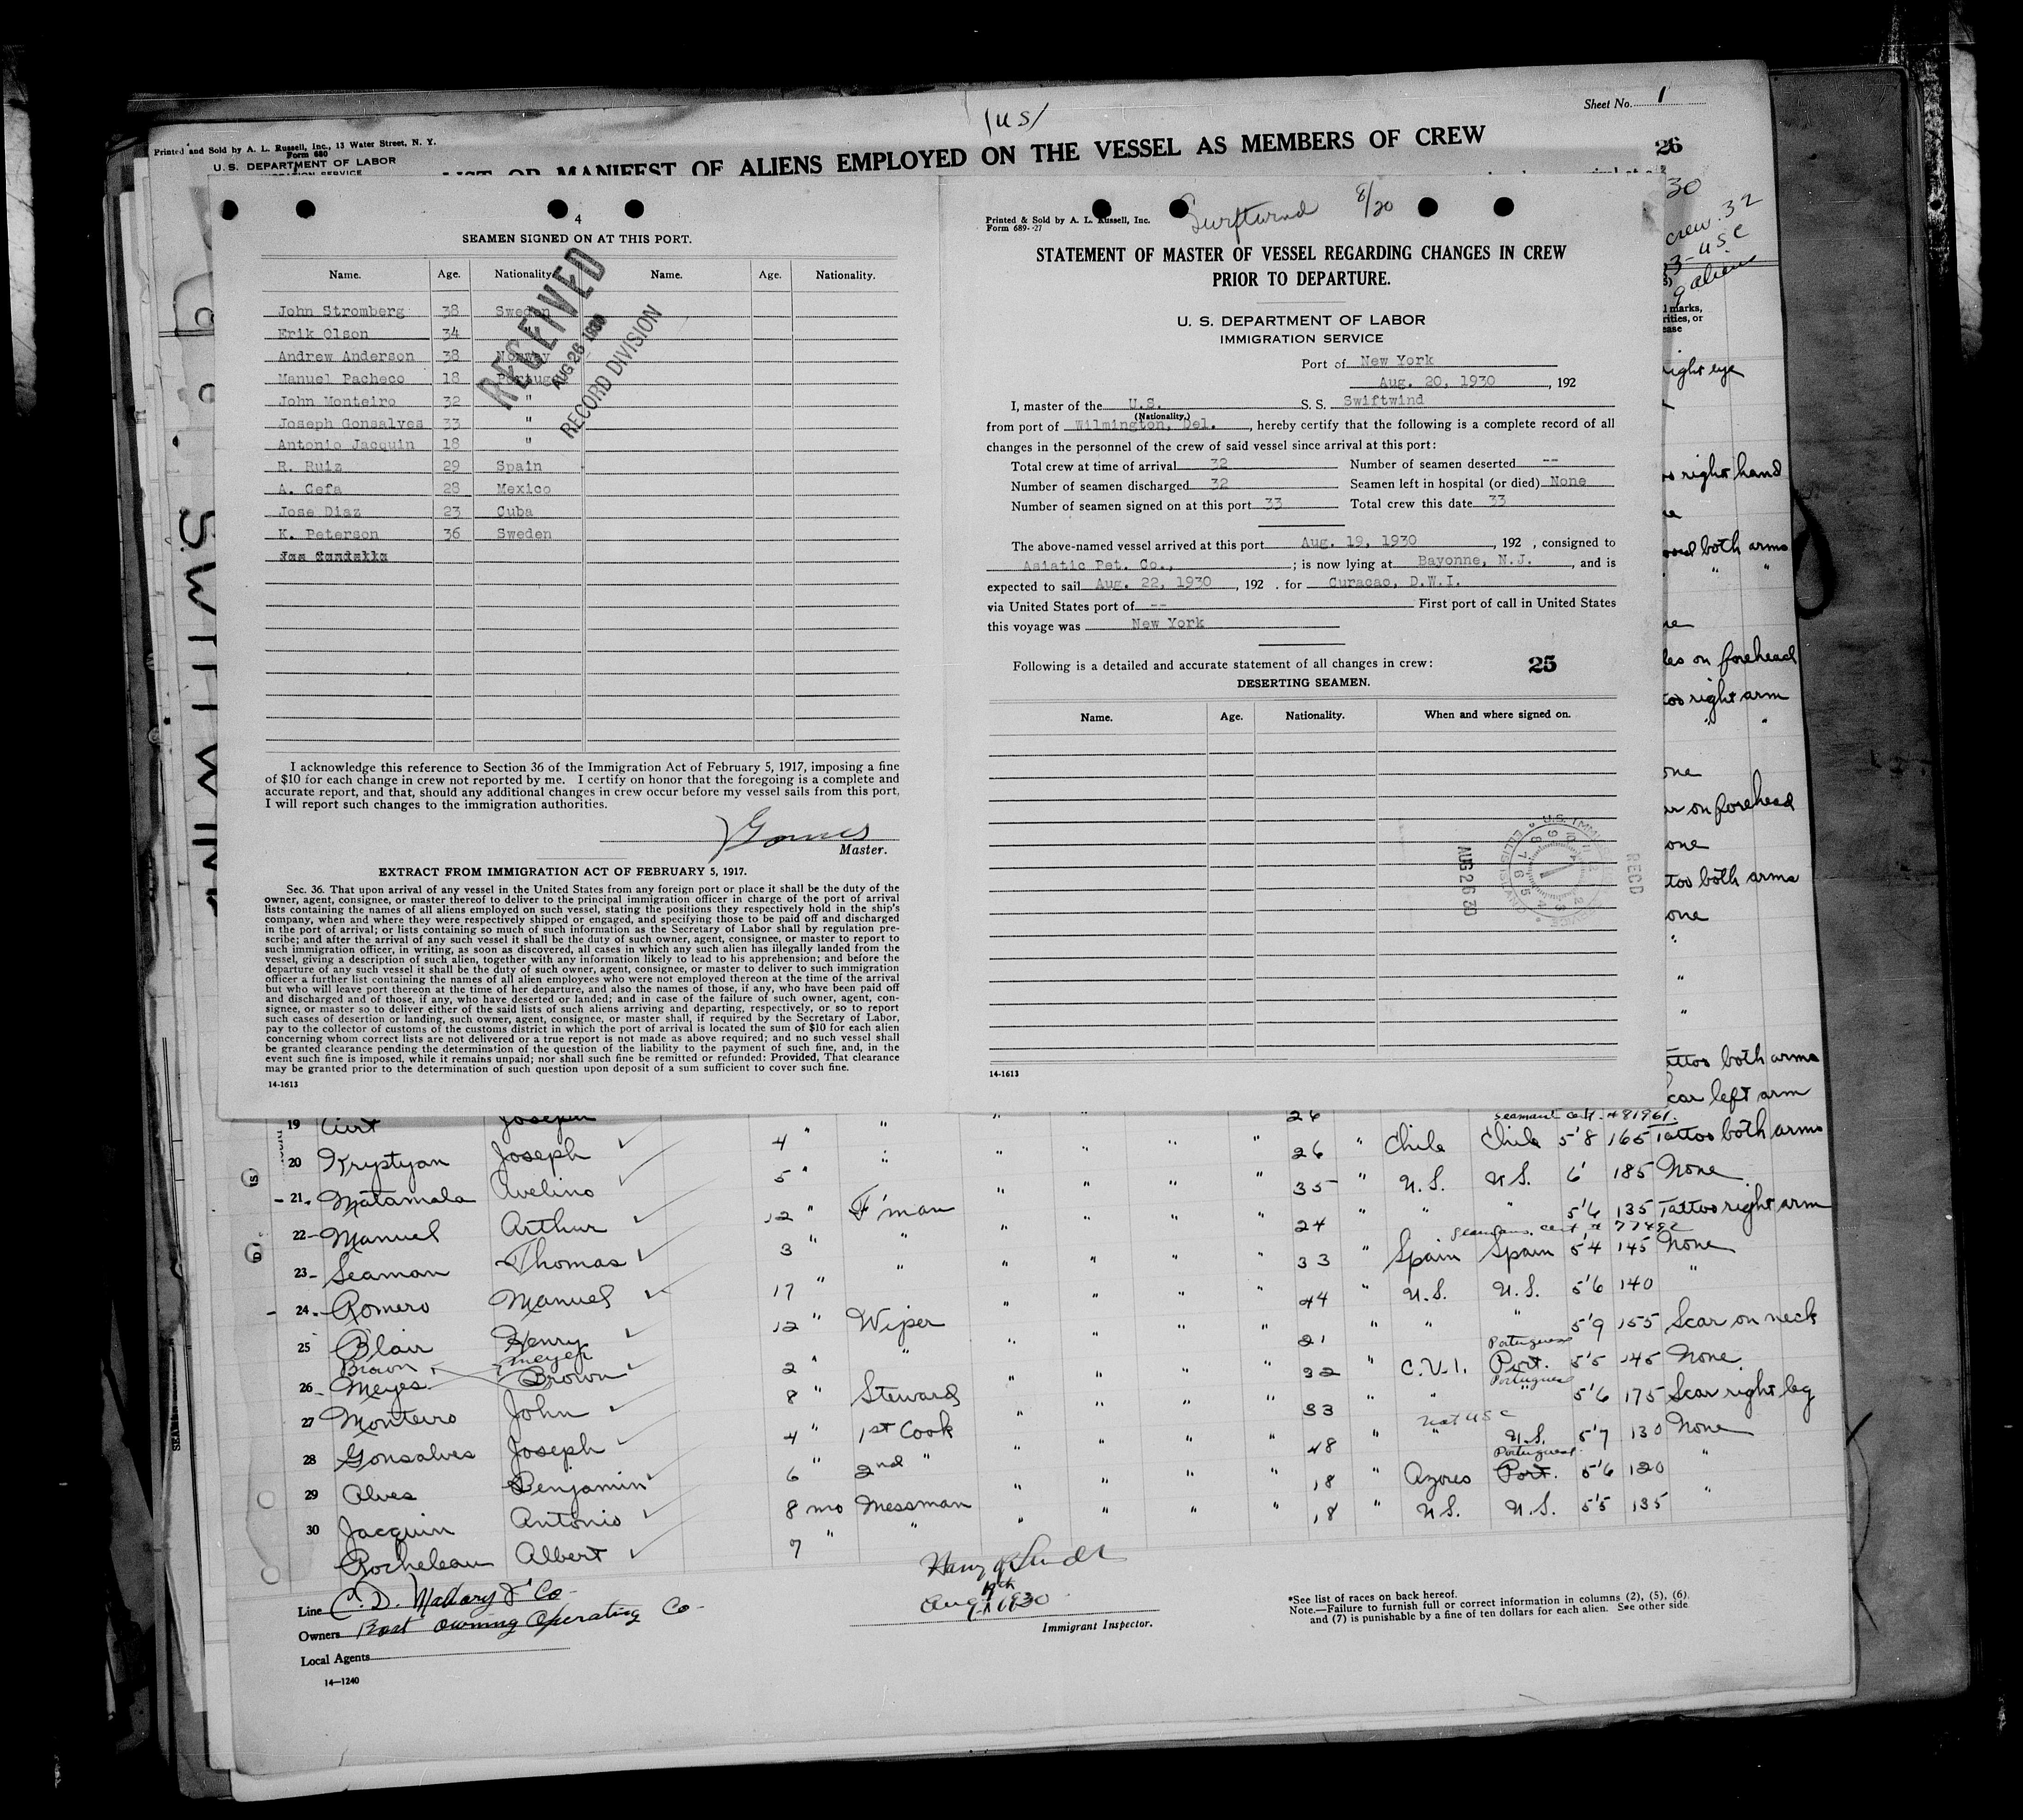 Sheet No. 1
(us/
Printed and Sold by A. L. Russell, Inc., 13 Water Street, N. Y.
Form 680
U. S. DEPARTMENT OF LABOR
IMMIGRATION SERVICE
LIST OR MANIFEST OF ALIENS EMPLOYED ON THE VESSEL AS MEMBERS OF CREW
26
30
crew 32
3-USC
9 alien
4
SEAMEN SIGNED ON AT THIS PORT.
Name. Age. Nationality. Name. Age. Nationality.
John Stromberg 38 Sweden
Erik Olson 34
Andrew Anderson 38 Norway
Manuel Pacheco 18 Portugal
John Monteiro 32 "
Joseph Gonsalves 33 "
Antonio Jacquin 18 "
R. Ruiz 29 Spain
A. Cefa 28 Mexico
Jose Diaz 23 Cuba
K. Peterson 36 Sweden
RECEIVED
AUG 26 1930
RECORD DIVISION
I acknowledge this reference to Section 36 of the Immigration Act of February 5, 1917, imposing a fine
of $10 for each change in crew not reported by me. I certify on honor that the foregoing is a complete and
accurate report, and that, should any additional changes in crew occur before my vessel sails from this port,
I will report such changes to the immigration authorities.
Master.
EXTRACT FROM IMMIGRATION ACT OF FEBRUARY 5, 1917.
Sec. 36. That upon arrival of any vessel in the United States from any foreign port or place it shall be the duty of the
owner, agent, consignee, or master thereof to deliver to the principal immigration officer in charge of the port of arrival
lists containing the names of all aliens employed on such vessel, stating the positions they respectively hold in the ship's
company, when and where they were respectively shipped or engaged, and specifying those to be paid off and discharged
in the port of arrival; or lists containing so much of such information as the Secretary of Labor shall by regulation pre-
scribe; and after the arrival of any such vessel it shall be the duty of such owner, agent, consignee, or master to report to
such immigration officer, in writing, as soon as discovered, all cases in which any such alien has illegally landed from the
vessel, giving a description of such alien, together with any information likely to lead to his apprehension; and before the
departure of any such vessel it shall be the duty of such owner, agent, consignee, or master to deliver to such immigration
officer a further list containing the names of all alien employees who were not employed thereon at the time of the arrival
but who will leave port thereon at the time of her departure, and also the names of those, if any, who have been paid off
and discharged and of those, if any, who have deserted or landed; and in case of the failure of such owner, agent, con-
signee, or master so to deliver either of the said lists of such aliens arriving and departing, respectively, or so to report
such cases of desertion or landing, such owner, agent, consignee, or master shall, if required by the Secretary of Labor,
pay to the collector of customs of the customs district in which the port of arrival is located the sum of $10 for each alien
concerning whom correct lists are not delivered or a true report is not made as above required; and no such vessel shall
be granted clearance pending the determination of the question of the liability to the payment of such fine, and, in the
event such fine is imposed, while it remains unpaid; nor shall such fine be remitted or refunded: Provided, That clearance
may be granted prior to the determination of such question upon deposit of a sum sufficient to cover such fine.
14-1613
Printed & Sold by A. L. Russell, Inc.
Form 689--27
Swiftwind 8/20
STATEMENT OF MASTER OF VESSEL REGARDING CHANGES IN CREW
PRIOR TO DEPARTURE.
U. S. DEPARTMENT OF LABOR
IMMIGRATION SERVICE
Port of New York
Aug. 20, 1930, 192
I, master of the U.S. S. S. Swiftwind
(Nationality.)
from port of Wilmington, Del., hereby certify that the following is a complete record of all
changes in the personnel of the crew of said vessel since arrival at this port:
Total crew at time of arrival 32 Number of seamen deserted --
Number of seamen discharged 32 Seamen left in hospital (or died) None
Number of seamen signed on at this port 33 Total crew this date 33
The above-named vessel arrived at this port Aug. 19, 1930, 192 , consigned to
Asiatic Pet. Co., ; is now lying at Bayonne, N.J., and is
expected to sail Aug. 22, 1930, 192 . for Curacao, D.W.I.
via United States port of -- First port of call in United States
this voyage was New York
Following is a detailed and accurate statement of all changes in crew: 25
DESERTING SEAMEN.
Name. Age. Nationality. When and where signed on.
AUG 26 30
REC'D
14-1613
SWIFTWIND
right eye
right hand
both arms
on forehead
right arm
on forehead
both arms
Tattoo both arms
Scar left arm
19 Airt Joseph " " " 26 seamans cert. #81961
20 Krystyan Joseph 4 " " 26 " Chile Chile 5'8 165 Tattoo both arms
21 Matamala Avelino 5 " 35 " U.S. U.S. 6' 185 None
22 Manuel Arthur 12 " F'man 24 " " 5'6 135 Tattoo right arm
seamans cert # 77492
23 Seaman Thomas 3 " " 33 " Spain Spain 5'4 145 None
24 Romero Manuel 17 " " 44 " U.S. U.S. 5'6 140 "
25 Blair Henry 12 " Wiper 21 " " 5'9 155 Scar on neck
Brown Meyer
26 Meyes Brown 2 " " 32 " C.V.I. Portuguese Port. 5'5 145 None
27 Monteiro John 8 " Steward 33 " " Portuguese " 5'6 175 Scar right leg
28 Gonsalves Joseph 4 " 1st Cook 48 " " Nat USC U.S. 5'7 130 None
29 Alves Benjamin 6 " 2nd " 18 " Azores Portuguese Port. 5'6 120 "
30 Jacquin Antonio 8 mo Messman 18 " U.S. U.S. 5'5 135 "
Rocheleau Albert 7 " "
Line C. D. Mallory & Co
Owners Bost Owning Operating Co
Local Agents
14—1240
Aug 19th 1930
Immigrant Inspector.
*See list of races on back hereof.
Note.—Failure to furnish full or correct information in columns (2), (5), (6),
and (7) is punishable by a fine of ten dollars for each alien. See other side